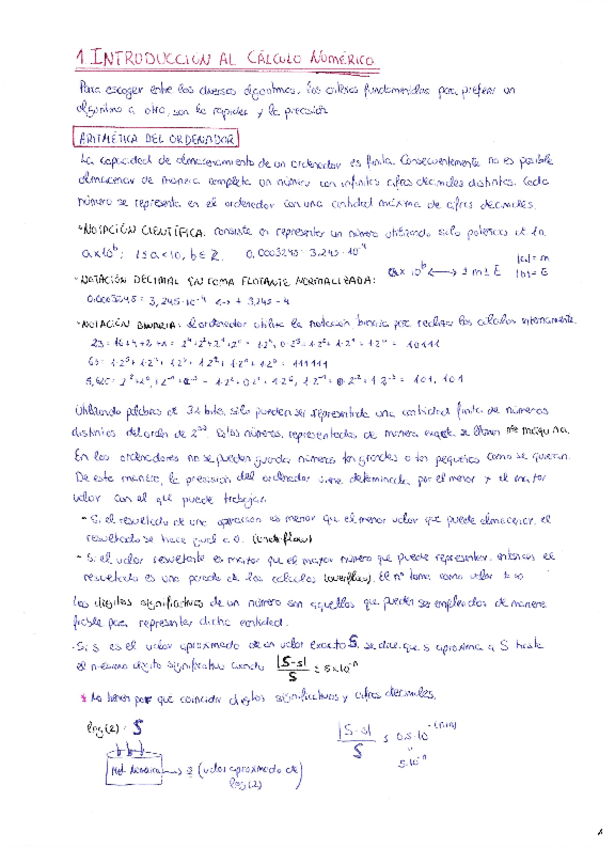 1. INTRODUCCIÓN AL CÁLCULO NUMÉRICO
Para escoger entre los diversos algoritmos. Los criterios fundamentales para preferir un
algoritmo a otro, son la rapidez y la precisión
ARITMÉTICA DEL ORDENADOR
La capacidad de almacenamiento de un ordenador es finita. Consecuentemente no es posible
almacenar de manera completa un número con infinitas cifras decimales distintas. Cada
número se representa en el ordenador con una cantidad máxima de cifras decimales.
- NOTACIÓN CIENTÍFICA: consiste en representar un número utilizando solo potencias
a x 10^b ; 1 ≤ a < 10, b ∈ Z. 0,0003245 = 3,245 · 10^-4
- NOTACIÓN DECIMAL EN COMA FLOTANTE NORMALIZADA: a x 10^b ⟷ ± m ± E |a| = m |b| = E
0,0003245 = 3,245·10^-4 <-> + 3,245 - 4
- NOTACIÓN BINARIA: el ordenador utiliza la notación binaria para realizar los cálculos internamente.
23 = 16+4+2+1 = 2^4+2^2+2^1+2^0 = 1·2^4+0·2^3+1·2^2+1·2^1+1·2^0 = 10111
63 = 1·2^5+1·2^4+1·2^3+1·2^2+1·2^1+1·2^0 = 111111
5,625 = = 101,101
Utilizando palabras de 32 bits, sólo pueden ser representada una cantidad finita de números
distintos del orden de 2^32. Estos números, representados de manera exacta se llaman nº máquina.
En los ordenadores no se pueden guardar números tan grandes o tan pequeños como se quieran.
De esta manera, la precisión del ordenador viene determinada por el menor y el mayor
valor con el que puede trabajar.
- Si el resultado de una operación es menor que el menor valor que puede almacenar, el
resultado se hace igual a 0. (underflow)
- Si el valor resultante es mayor que el mayor número que puede representar, entonces el
resultado es una parada de los cálculos (overflow). El nº toma como valor ± ∞
Los dígitos significativos de un número son aquellos que pueden ser empleados de manera
fiable para representar dicha cantidad.
· Si s es el valor aproximado de un valor exacto S, se dice que s aproxima a S hasta
el n-ésimo dígito significativo cuando |S-s|/S ≤ 5x10^-n
* No tienen por que coincidir dígitos significativos y cifras decimales.
log(2) = S |S-s|/S ≤ 0.5·10^-(n-1)
"
5·10^-n
Met. Numérico → s (valor aproximado de
log(2))